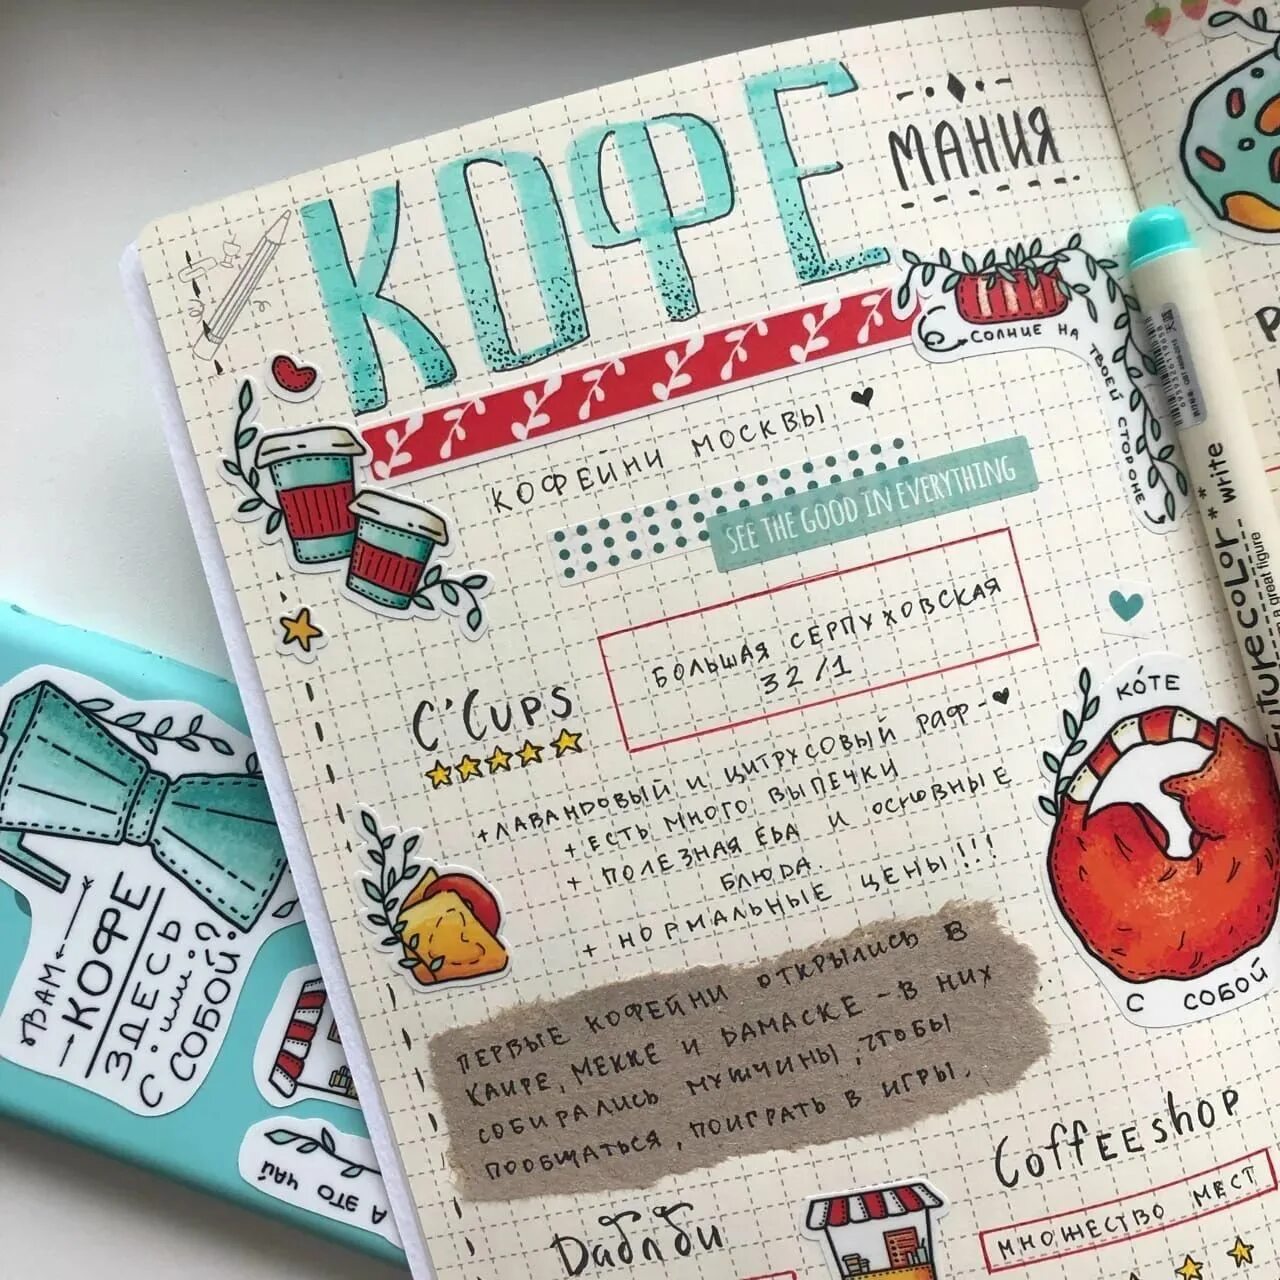 КОФЕ
МАНИЯ
СОЛНЦЕ НА ТВОЕЙ СТОРОНЕ
КОФЕЙНИ МОСКВЫ
SEE THE GOOD IN EVERYTHING
БОЛЬШАЯ СЕРПУХОВСКАЯ
32/1
C'CUPS
+ЛАВАНДОВЫЙ И ЦИТРУСОВЫЙ РАФ-
+ЕСТЬ МНОГО ВЫПЕЧКИ
+ ПОЛЕЗНАЯ ЕДА И ОСНОВНЫЕ
БЛЮДА.
+ НОРМАЛЬНЫЕ ЦЕНЫ!!!
КОТЕ
С СОБОЙ
ПЕРВЫЕ КОФЕЙНИ ОТКРЫЛИСЬ В
КАИРЕ, МЕККЕ И ДАМАСКЕ - В НИХ
СОБИРАЛИСЬ МУЖЧИНЫ, ЧТОБЫ
ПООБЩАТЬСЯ, ПОИГРАТЬ В ИГРЫ.
Coffeeshop
МНОЖЕСТВО МЕСТ
Даблби
ВАМ
КОФЕ
ЗДЕСЬ
ИЛИ
С СОБОЙ?
А ЭТО ЧАЙ
futurecolor**write
a great figure